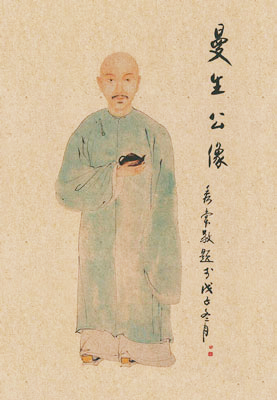 曼生公像
秀棠敬题于戊子冬月